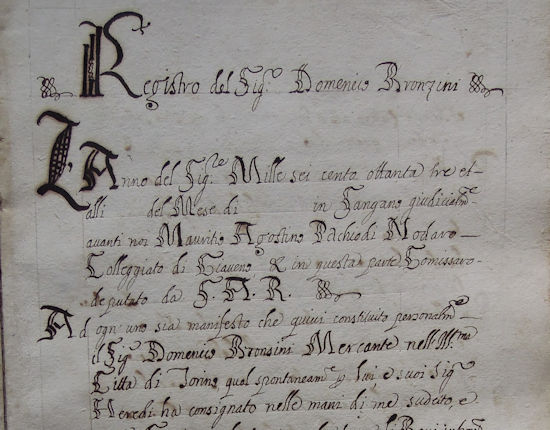 Registro del Sig.r Domenico Bronzini
L'Anno del Sig.re Mille sei cento ottanta tre et
alli del Mese di in Sangano giudicialm.te
avanti noi Mauritio Agostino Pachiodi Nodaro
Colleggiato di Giaveno, & in questa parte Comissaro
deputato da S. A. R.
Ad ogn'uno sia manifesto che quivi constituito personalm.te
il Sig.r Domenico Bronsini Mercante nell'Ill.ma
Citta di Torino qual spontaneam.te p lui, e suoi Sig.ri
Heredi ha consignato nelle mani di me sudeto, e